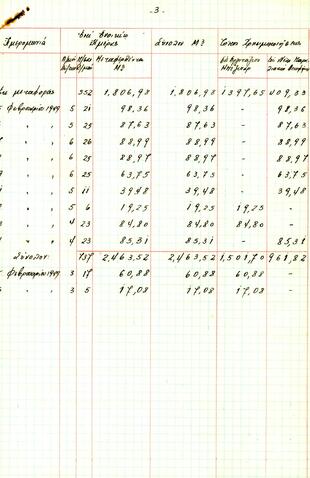 - 3 -
Ημερομηνία Σύνολον Μ3 Τόπος Χρησιμοποιήσεως
Εκ μεταφοράς 552 1,806,98 1,806,98 1397,65 409,33
Φεβρουαρίου 1949 5 21 98,36 98,36 - 98,36
" " 5 25 87,63 87,63 - 87,63
" " 6 26 88,99 88,99 - 88,99
" " 6 25 88,97 88,97 - 88,97
" " 6 25 63,75 63,75 - 63,75
" " 5 11 39,48 39,48 - 39,48
" " 5 6 19,25 19,25 19,25 -
" " 4 23 84,80 84,80 84,80 -
" " 4 23 85,31 85,31 - 85,31
Σύνολον 737 2,463,52 2,463,52 1,501,70 961,82
Φεβρουαρίου 1949 3 17 60,88 60,88 60,88 -
" " 3 5 17,08 17,08 17,08 -